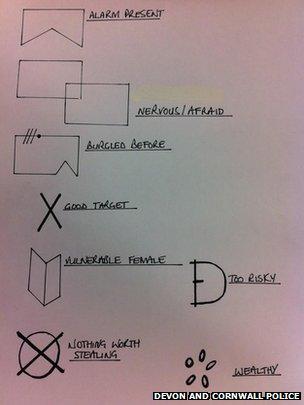 ALARM PRESENT
NERVOUS/AFRAID
BURGLED BEFORE
GOOD TARGET
VULNERABLE FEMALE
TOO RISKY
NOTHING WORTH
STEALING
WEALTHY
DEVON AND CORNWALL POLICE